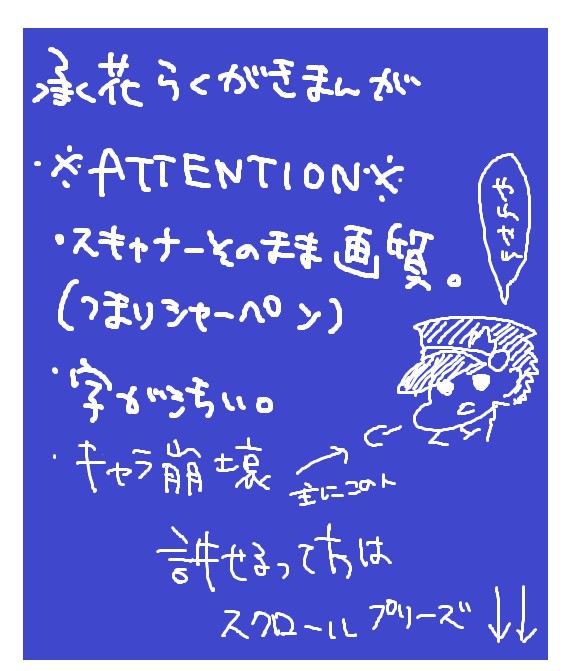 承花らくがきまんが
・※ATTENTION※
・スキャナーそのまま画質。
(つまりシャーペン)
・字がきちい。
・キャラ崩壊
→主にこの人
許せるって方は
スクロールプリーズ↓↓